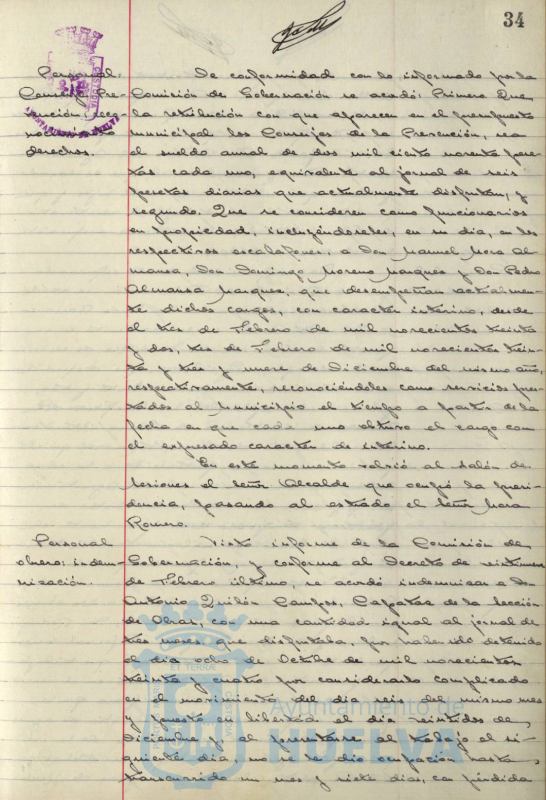 34
Personal:
Conserjes Pre-
vención; reco-
nociendo
derechos.
De conformidad con lo informado por la
Comisión de Gobernación se acordó: Primero Que
la retribución con que aparecen en el presupuesto
municipal los Conserjes de la Prevención, sea
el sueldo anual de dos mil ciento noventa pese-
tas cada uno, equivalente al jornal de seis
pesetas diarias que actualmente disfrutan, y
segundo. Que se consideren como funcionarios
en propiedad, incluyéndoseles, en su día, en los
respectivos escalafones, a Don Manuel Mora Al-
mansa, Don Domingo Moreno Marquez y Don Pedro
Almansa Marquez, que desempeñan actualmen-
te dichos cargos, con caracter interino, desde
el tres de Febrero de mil novecientos treinta
y dos, tres de Febrero de mil novecientos trein-
ta y tres y nueve de Diciembre del mismo año,
respectivamente, reconociéndoles como servicios pres-
tados al Municipio el tiempo a partir de la
fecha en que cada uno obtuvo el cargo con
el expresado caracter de interino.
En este momento volvió al salón de
sesiones el Señor Alcalde que ocupó la presi-
dencia, pasando al estrado el Señor Mora
Romero.
Personal
obrero: indem-
nización.
Visto informe de la Comisión de
Gobernación, y conforme al Decreto de veintinueve
de Febrero último, se acordó indemnizar a Don
Antonio Quilón Campos, Capataz de la Sección
de Obras, con una cantidad igual al jornal de
tres meses que disfrutaba, por haber sido detenido
el día ocho de Octubre de mil novecientos
treinta y cuatro por considerarlo complicado
en el movimiento del día seis del mismo mes
y puesto en libertad el día veintidos de
Diciembre y al presentarse al trabajo el si-
guiente día, no se le dio ocupación hasta
transcurrido un mes y siete días, con pérdida
Ayuntamiento de
HUELVA